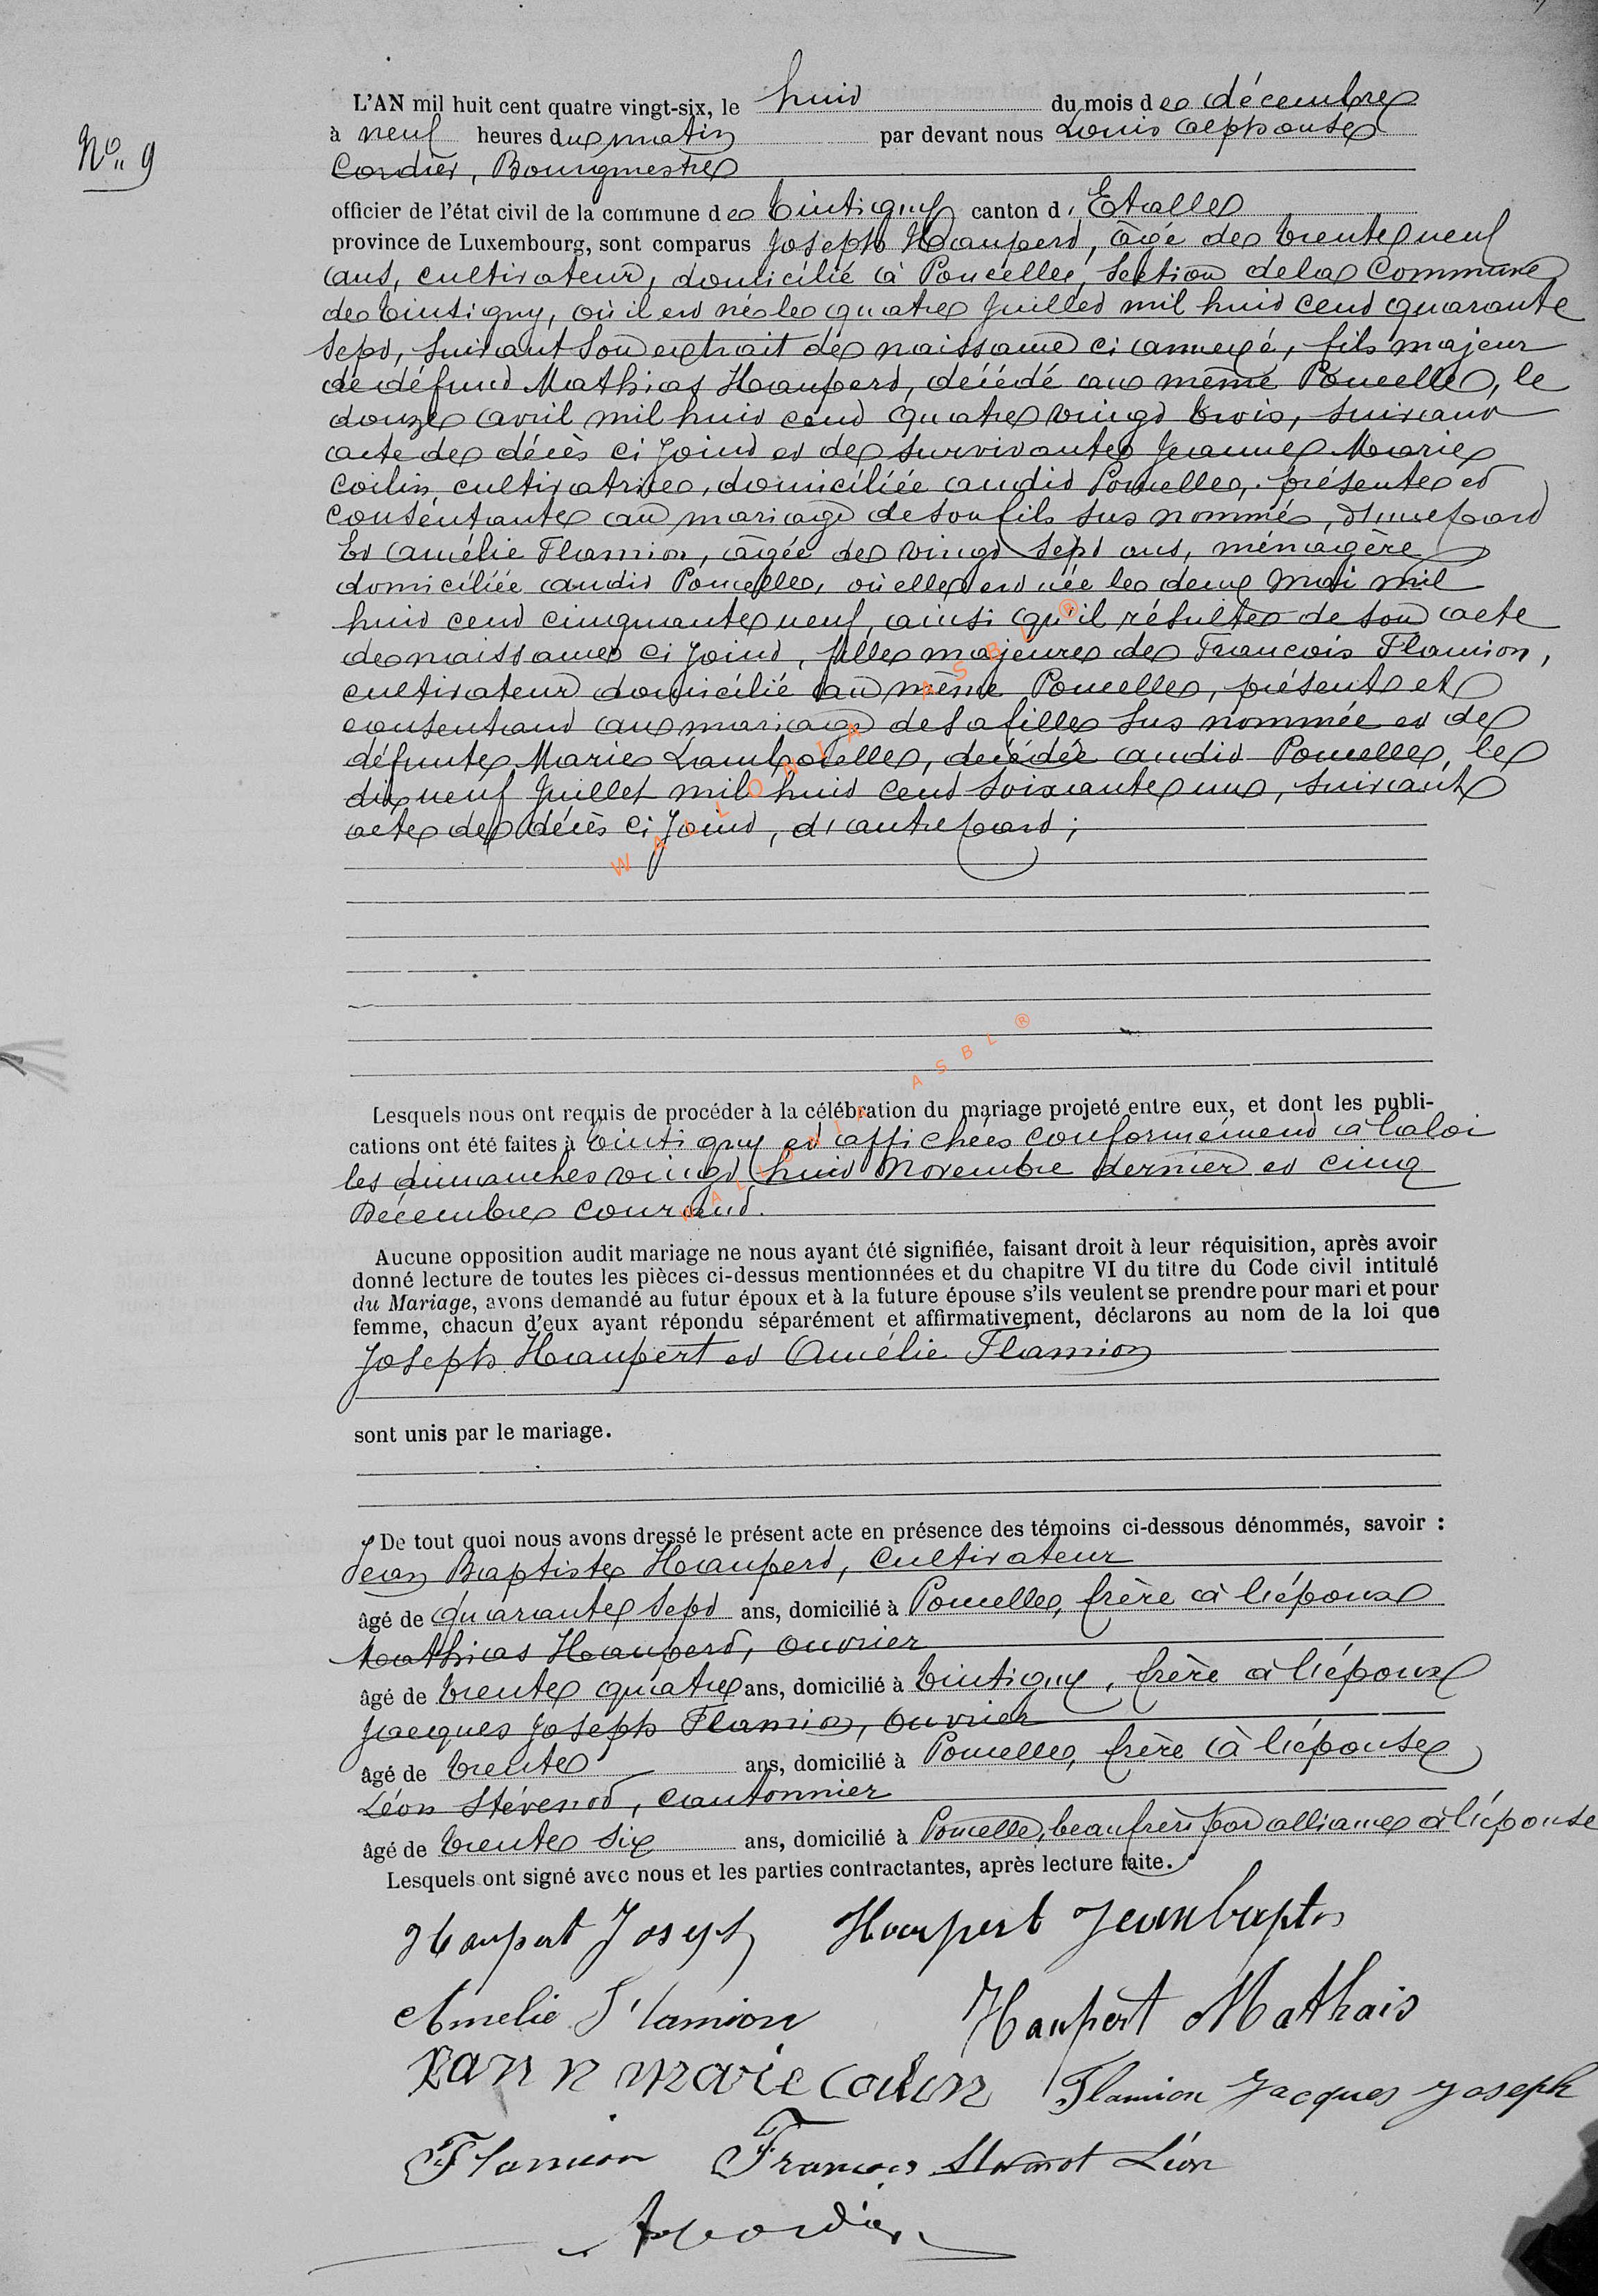 L'AN mil huit cent quatre vingt-six, le huit du mois de décembre
No 9
à neuf heures du matin par devant nous Louis Alphonse
Cordier, Bourgmestre
officier de l'état civil de la commune de Tintigny canton d' Etalle
province de Luxembourg, sont comparus Joseph Haupert, âgé de trente neuf
ans, cultivateur, domicilié à Poncelle, section de la Commune
de Tintigny, où il est né le quatre Juillet mil huit cent quarante
sept, suivant son extrait de naissance ci annexé, fils majeur
de défunt Mathias Haupert, décédé au même Poncelle, le
douze avril mil huit cent quatre vingt trois, suivant
acte de décès ci joint et de survivante Jeanne Marie
Collin, cultivatrice, domiciliée audit Poncelle, présente et
consentante au mariage de son fils sus nommé, d'une part
Et Amélie Flamion, âgée de vingt sept ans, ménagère
domiciliée audit Poncelle, où elle est née le deux Mai mil
huit cent cinquante neuf, ainsi qu'il résulte de son acte
de naissance ci joint, fille majeure de François Flamion,
cultivateur domicilié au même Poncelle, présent et
consentant au mariage de sa fille sus nommée et de
défunte Marie Lambotelle, décédée audit Poncelle, le
dix neuf Juillet mil huit cent soixante un, suivant
acte de décès ci joint, d'autre part;
Lesquels nous ont requis de procéder à la célébration du mariage projeté entre eux, et dont les publi-
cations ont été faites à Tintigny et affichées conformément à la loi
les dimanches vingt huit Novembre dernier et cinq
Décembre courant.
Aucune opposition audit mariage ne nous ayant été signifiée, faisant droit à leur réquisition, après avoir
donné lecture de toutes les pièces ci-dessus mentionnées et du chapitre VI du titre du Code civil intitulé
du Mariage, avons demandé au futur époux et à la future épouse s'ils veulent se prendre pour mari et pour
femme, chacun d'eux ayant répondu séparément et affirmativement, déclarons au nom de la loi que
Joseph Haupert et Amélie Flamion
sont unis par le mariage.
De tout quoi nous avons dressé le présent acte en présence des témoins ci-dessous dénommés, savoir :
Jean Baptiste Haupert, cultivateur
âgé de quarante sept ans, domicilié à Poncelle, frère à l'époux
Mathias Haupert, ouvrier
âgé de trente quatre ans, domicilié à Tintigny, frère à l'époux
Jacques Joseph Flamion, ouvrier
âgé de trente ans, domicilié à Poncelle, frère à l'épouse
Léon Stévenot, cantonnier
âgé de trente six ans, domicilié à Poncelle, beau frère par alliance à l'épouse
Lesquels ont signé avec nous et les parties contractantes, après lecture faite.
Haupert Joseph Haupert Jeanbaptis
Amelie Flamion Haupert Mathais
marie Flamion Jacques Joseph
Flamion François Stevenot Léon
WALLONIA ASBL ®
WALLONIA ASBL ®